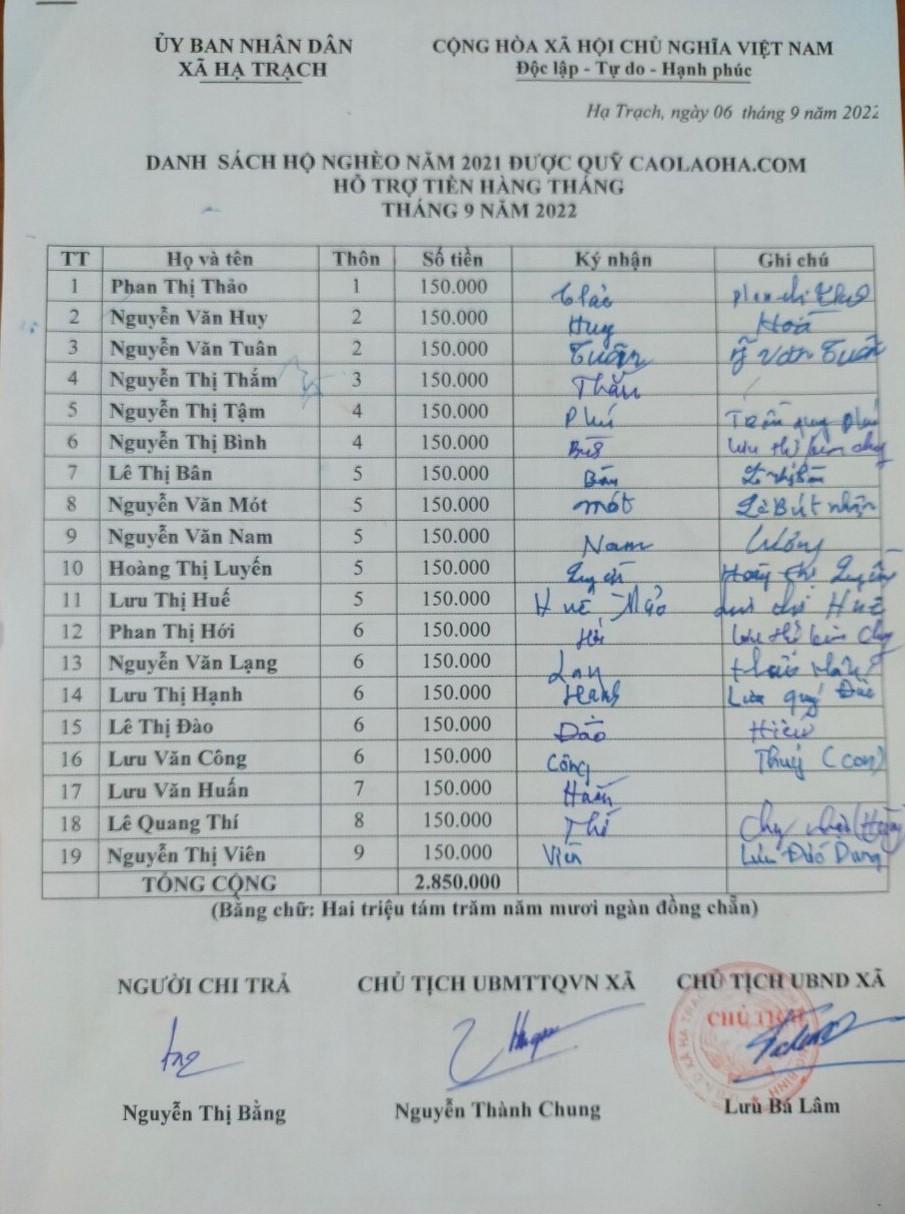 ỦY BAN NHÂN DÂN
XÃ HẠ TRẠCH
CỘNG HÒA XÃ HỘI CHỦ NGHĨA VIỆT NAM
Độc lập - Tự do - Hạnh phúc
Hạ Trạch, ngày 06 tháng 9 năm 2022
DANH SÁCH HỘ NGHÈO NĂM 2021 ĐƯỢC QUỸ CAOLAOHA.COM
HỖ TRỢ TIỀN HÀNG THÁNG
THÁNG 9 NĂM 2022
TT Họ và tên Thôn Số tiền Ký nhận Ghi chú
1 Phan Thị Thảo 1 150.000
2 Nguyễn Văn Huy 2 150.000 Huy Hoá
3 Nguyễn Văn Tuân 2 150.000 Tuân
4 Nguyễn Thị Thắm 3 150.000
5 Nguyễn Thị Tậm 4 150.000 Phú
6 Nguyễn Thị Bình 4 150.000
7 Lê Thị Bân 5 150.000 Bân
8 Nguyễn Văn Mót 5 150.000 mót
9 Nguyễn Văn Nam 5 150.000 Nam
10 Hoàng Thị Luyến 5 150.000
11 Lưu Thị Huế 5 150.000 Huế
12 Phan Thị Hới 6 150.000
13 Nguyễn Văn Lạng 6 150.000
14 Lưu Thị Hạnh 6 150.000
15 Lê Thị Đào 6 150.000 Đào
16 Lưu Văn Công 6 150.000 Công Thuý (con)
17 Lưu Văn Huấn 7 150.000
18 Lê Quang Thí 8 150.000 Thí
19 Nguyễn Thị Viên 9 150.000 Viên
TỔNG CỘNG 2.850.000
(Bằng chữ: Hai triệu tám trăm năm mươi ngàn đồng chẵn)
NGƯỜI CHI TRẢ
CHỦ TỊCH UBMTTQVN XÃ
CHỦ TỊCH UBND XÃ
CHỦ TỊCH
Nguyễn Thị Bằng
Nguyễn Thành Chung
Lưu Bá Lâm